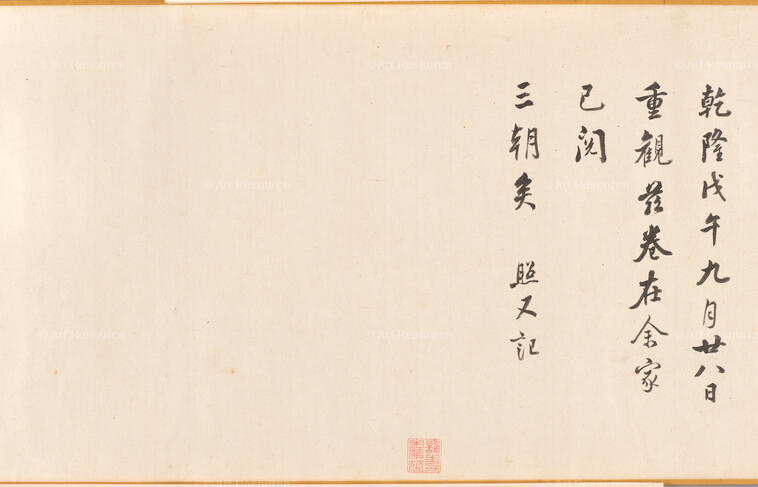 乾隆戊午九月廿八日
重觀茲卷在余家
已閱
三朝矣 照又記
© Art Resource
© Art Resource
© Art Resource
© Art Resource
© Art Resource
© Art Resource
© Art Resource
© Art Resource
© Art Resource